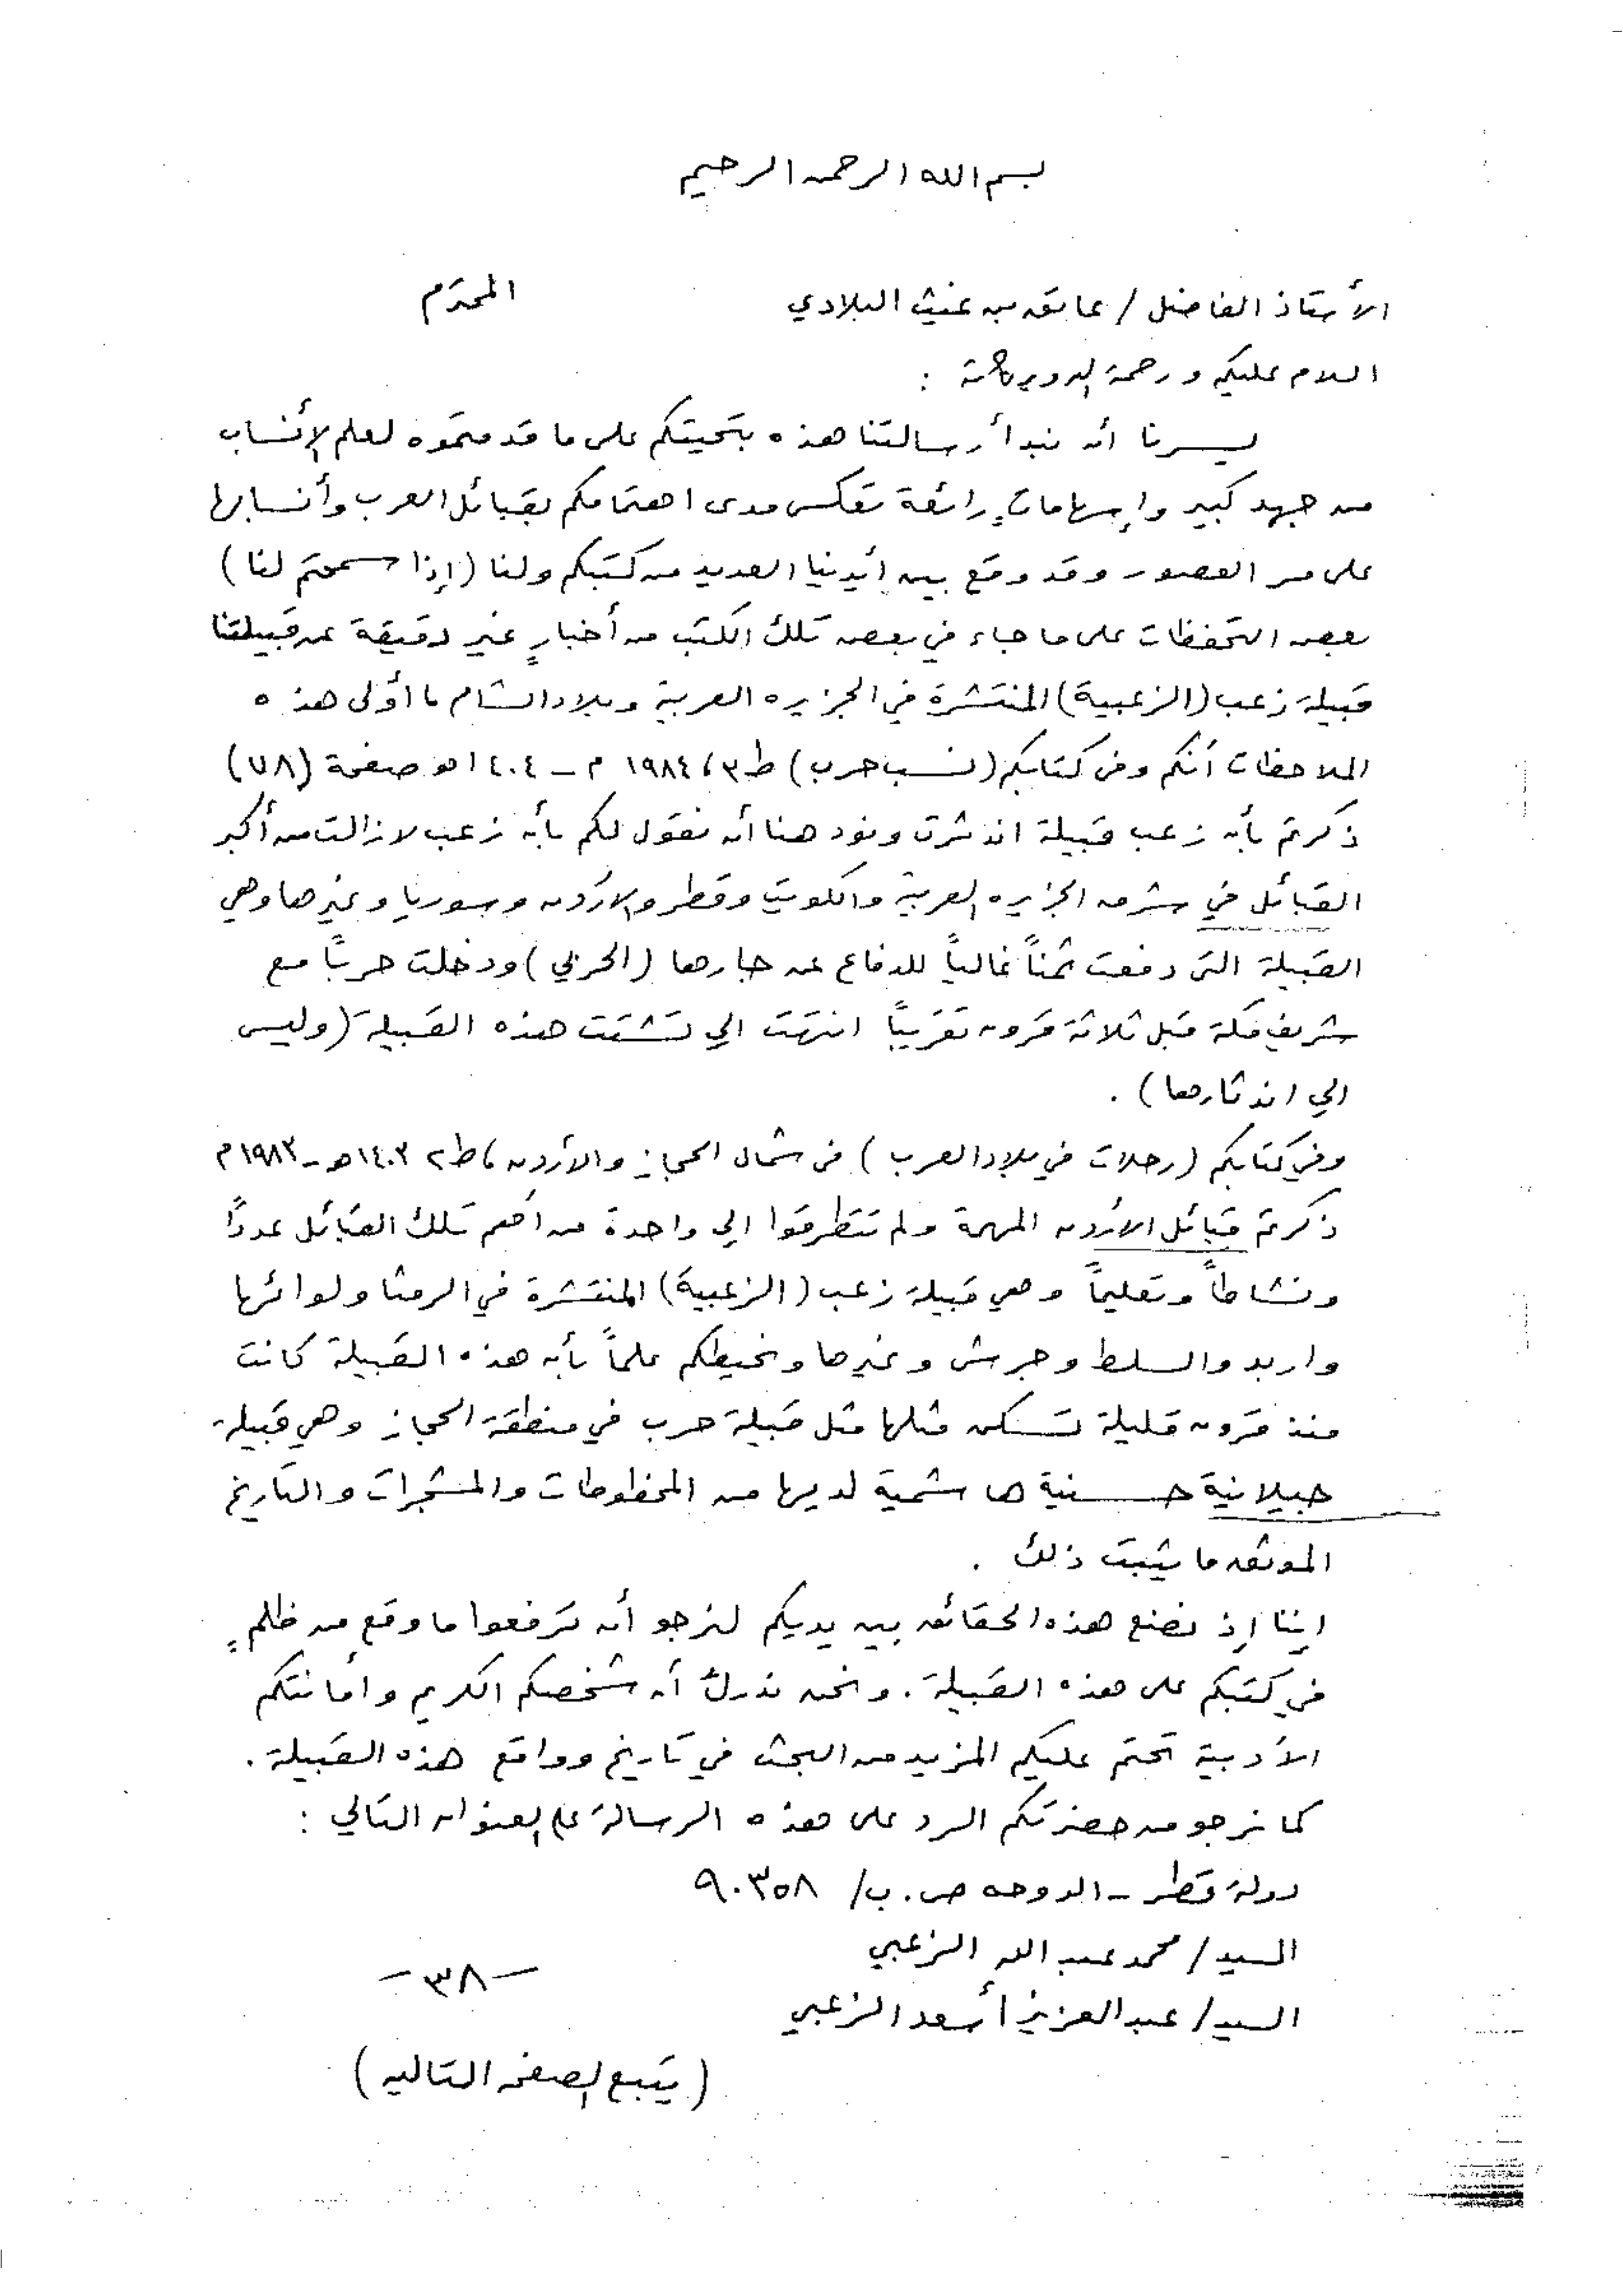 بسم الله الرحمن الرحيم
الأستاذ الفاضل / عاتق بن غيث البلادي المحترم
السلام عليكم ورحمة الله وبركاته :
يسرنا أن نبدأ رسالتنا هذه بتحيتكم على ما قدمتموه لعلم الأنساب
من جهد كبير وإسهاماتٍ رائعة تعكس مدى اهتمامكم بقبائل العرب وأنسابها
على مر العصور وقد وقع بين أيدينا العديد من كتبكم ولنا (إذا سمحتم لنا)
بعض التحفظات على ما جاء في بعض تلك الكتب من أخبارٍ غير دقيقة عن قبيلتنا
قبيلة زعب (الزعبية) المنتشرة في الجزيره العربية وبلاد الشام ما أولى هذه
الملاحظات أنكم وفي كتابكم (نسب حرب) ط٣، ١٩٨٤ م - ١٤٠٤هـ صفحة (٧٨)
ذكرتم بأن زعب قبيلة اندثرت ونود هنا أن نقول لكم بأن زعب لازالت من أكبر
القبائل في شرق الجزيره العربية والكويت وقطر والأردن وسوريا وغيرها وهي
القبيلة التي دفعت ثمناً غالياً للدفاع عن جارها (الحربي) ودخلت حرباً مع
شريف مكة قبل ثلاثة قرون تقريباً انتهت الي تشتت هذه القبيلة (وليس
الي اندثارها) .
وفي كتابكم (رحلات في بلاد العرب) في شمال الحجاز والأردن، ط٢ ١٤٠٣هـ - ١٩٨٣م
ذكرتم قبائل الأردن المهمة ولم تتطرقوا الي واحدة من أهم تلك القبائل عدداً
ونشاطاً وتعليماً وهي قبيلة زعب (الزعبية) المنتشرة في الرمثا ولوائها
واربد والسلط وجرش وغيرها ونحيطكم علماً بأن هذه القبيلة كانت
منذ قرون قليلة تسكن مثلها مثل قبيلة حرب في منطقة الحجاز وهي قبيلة
جيلانية حسنية هاشمية لديها من المخطوطات والمشجرات والتاريخ
الموثق ما يثبت ذلك .
إننا إذ نضع هذه الحقائق بين يديكم لنرجو أن ترفعوا ما وقع من ظلمٍ
في كتبكم على هذه القبيلة . ونحن ندرك أن شخصكم الكريم وأمانتكم
الأدبية تحتم عليكم المزيد من البحث في تاريخ وواقع هذه القبيلة .
كما نرجو من حضرتكم الرد على هذه الرسالة على العنوان التالي :
دولة قطر - الدوحه ص . ب / ٩٠٣٥٨
السيد / محمد عبد الله الزعبي
السيد / عبد العزيز أسعد الزعبي
- ٣٨ -
(يتبع الصفحه التاليه)